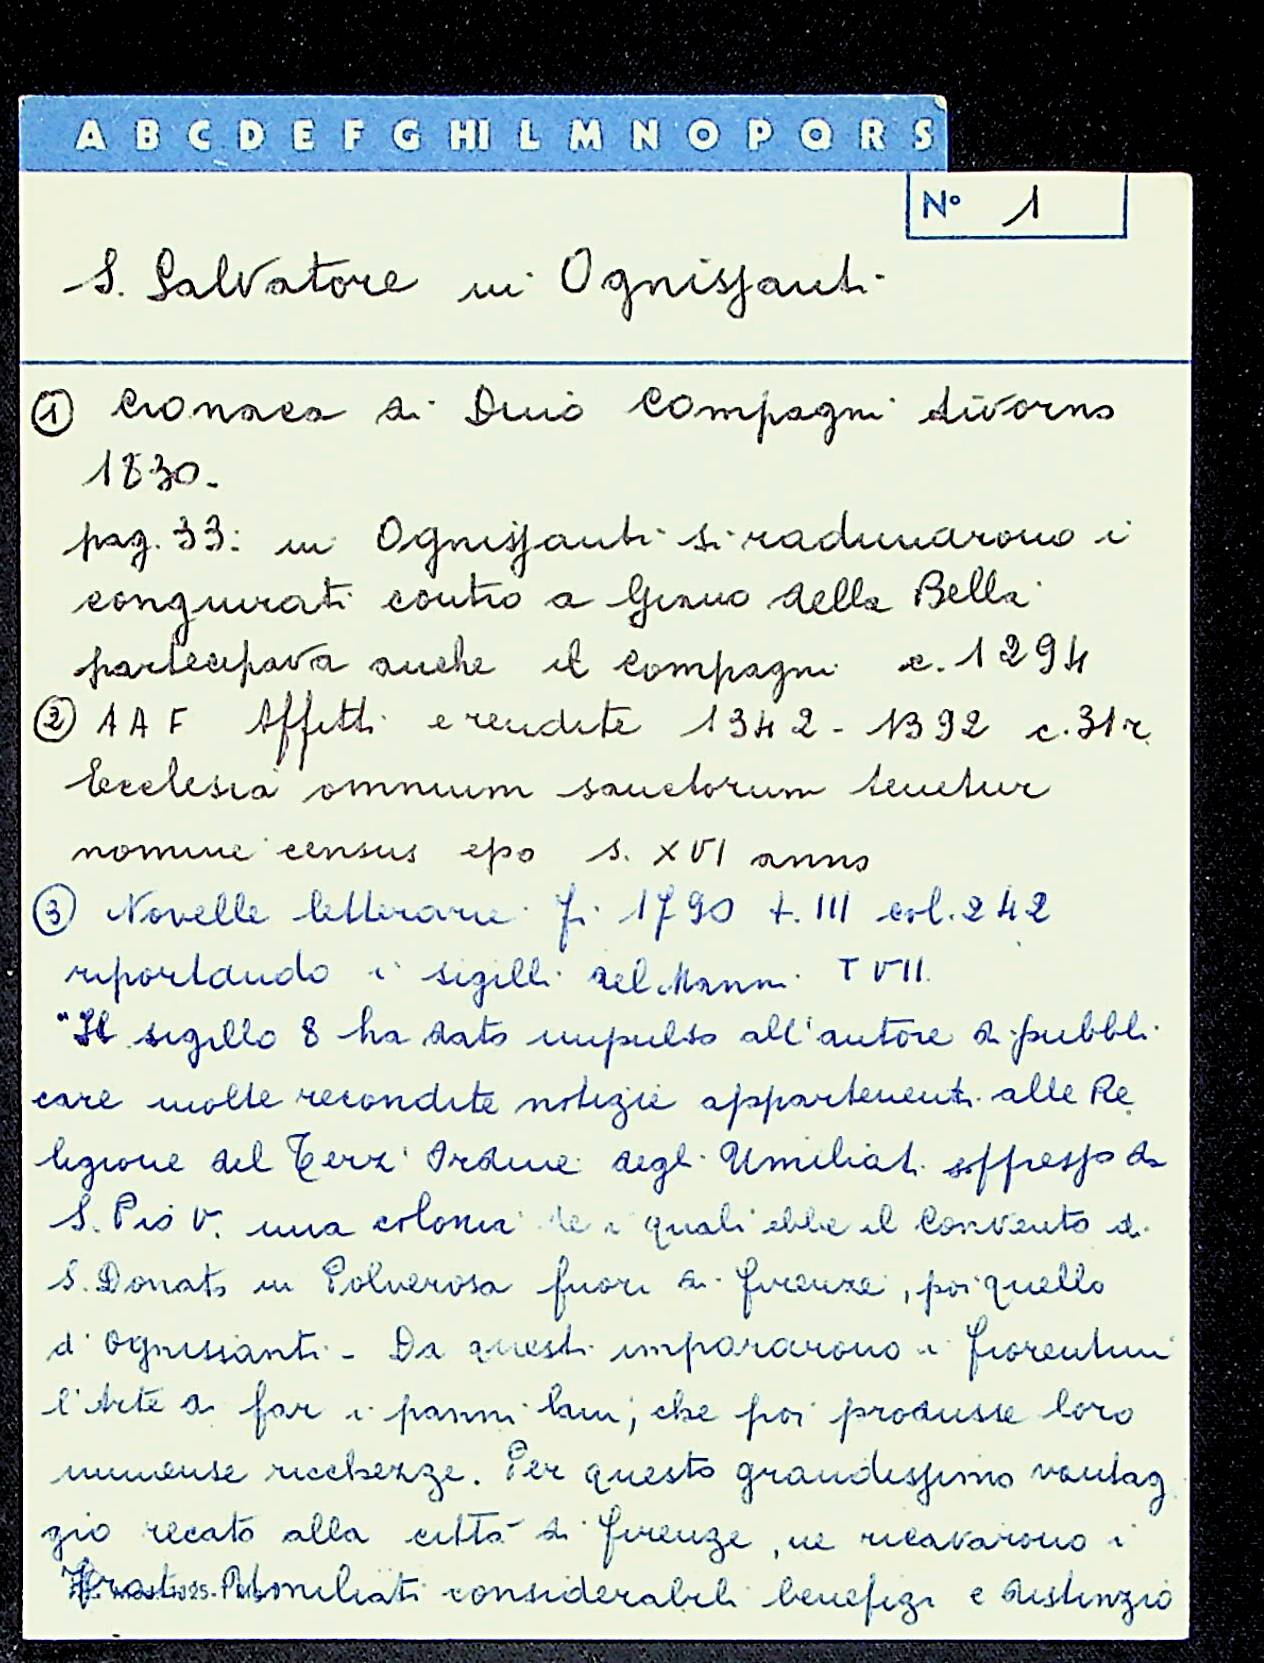 A B C D E F G HI L M N O P Q R S
N° 1
S. Salvatore in Ognissanti
① Cronaca di Dino Compagni Livorno
1830.
pag. 33: in Ognissanti si radunarono i
congiurati contro a Giano della Bella
partecipava anche il Compagni c. 1294
② AAF Affitti e rendite 1342-1392 c.31r.
Ecclesia omnium sanctorum tenetur
nomine census epo s. XVI anno
③ Novelle letterarie Fi. 1790 t. III col. 242
riportando i sigilli del Manni T VII.
"Il sigillo 8 ha dato impulso all'autore di pubbli
care molte recondite notizie appartenenti alle Re
ligione del Terz' Ordine degli Umiliati soppresso da
S. Pio V. una colonia de i quali ebbe il Convento di
S. Donato in Polverosa fuori di Firenze, poi quello
d'Ognissanti - Da questi impararono i fiorentini
l'Arte di far i panni lani, che poi produsse loro
immense ricchezze. Per questo grandissimo vantag
gio recato alla città di Firenze, ne ricavarono i
Frati Umiliati considerabili benefizi e distinzio